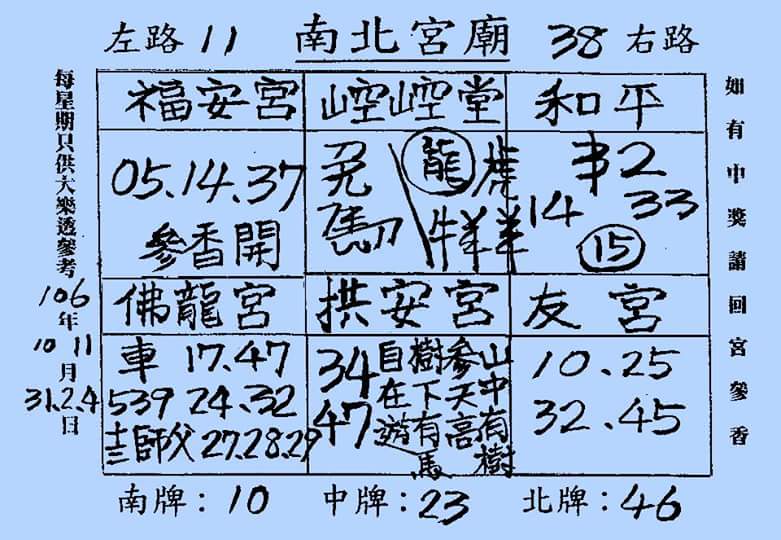 左路 11 南北宮廟 38 右路
每星期只供大樂透參考
106年
10 11月
31.2.4日
如有中獎請回宮參香
福安宮
05.14.37
參香開
崆崆堂
兔 龍 虎
馬 牛羊羊
和平
串2
14 33
15
佛龍宮
車 17.47
539 24.32
師父 27.28.29
拱安宮
34
47
山中有樹
參天高
樹下有馬
自在遊
友宮
10.25
32.45
南牌:10 中牌:23 北牌:46